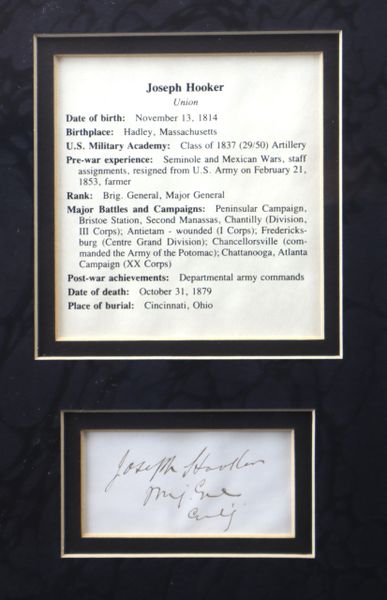 Joseph Hooker
Union
Date of birth: November 13, 1814
Birthplace: Hadley, Massachusetts
U.S. Military Academy: Class of 1837 (29/50) Artillery
Pre-war experience: Seminole and Mexican Wars, staff
assignments, resigned from U.S. Army on February 21,
1853, farmer
Rank: Brig. General, Major General
Major Battles and Campaigns: Peninsular Campaign,
Bristoe Station, Second Manassas, Chantilly (Division,
III Corps); Antietam - wounded (I Corps); Fredericks-
burg (Centre Grand Division); Chancellorsville (com-
manded the Army of the Potomac); Chattanooga, Atlanta
Campaign (XX Corps)
Post-war achievements: Departmental army commands
Date of death: October 31, 1879
Place of burial: Cincinnati, Ohio
Joseph Hooker